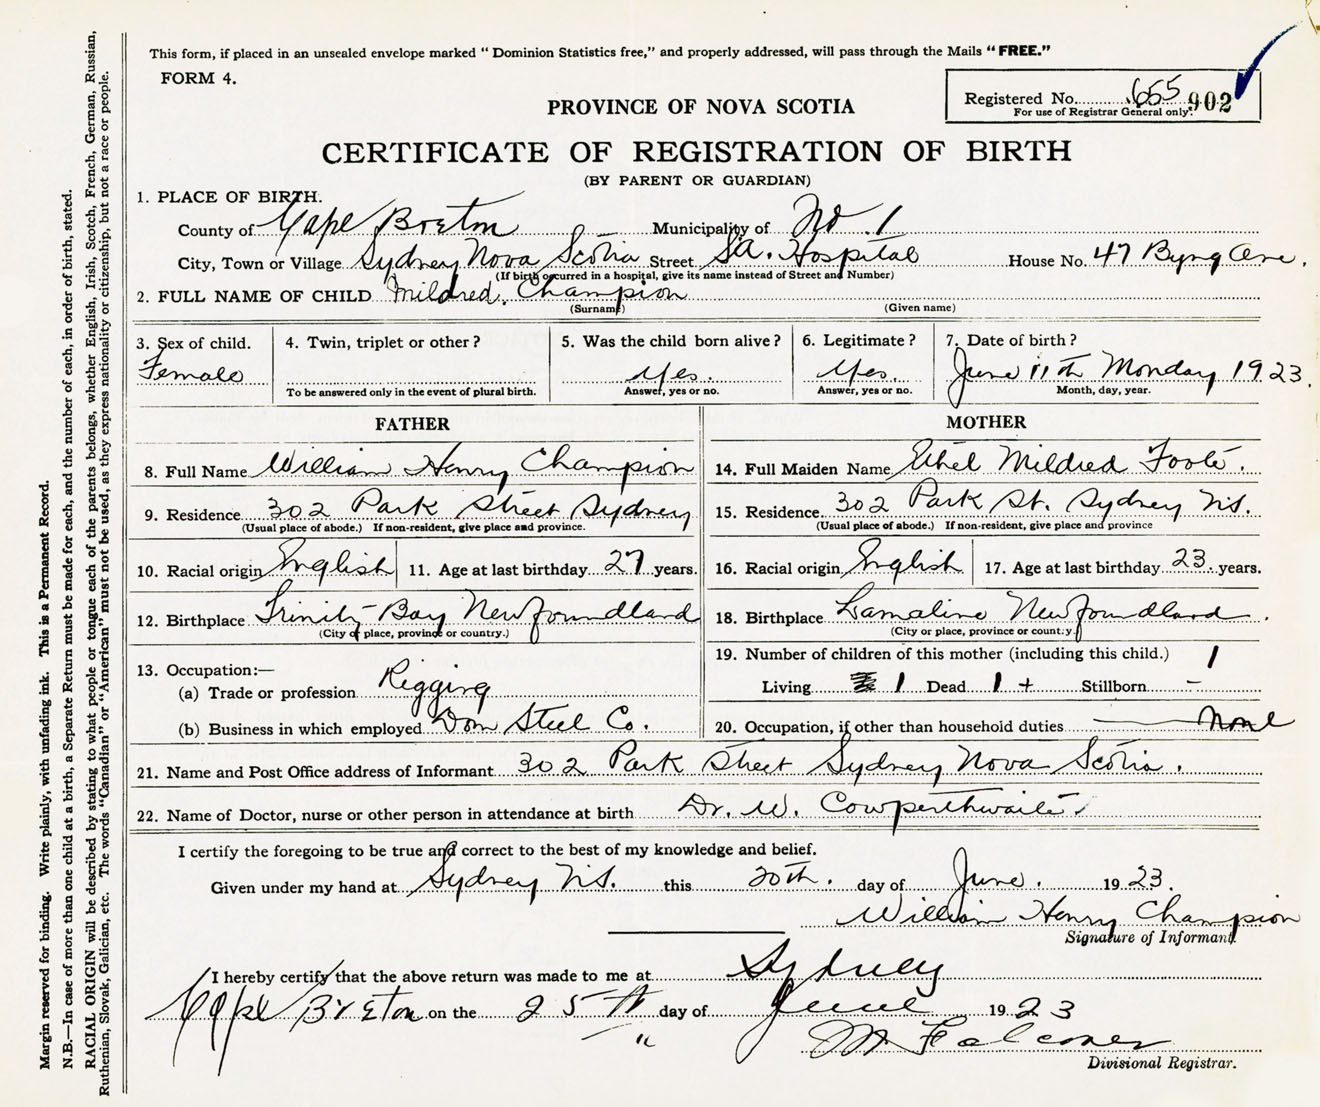 This form, if placed in an unsealed envelope marked "Dominion Statistics free," and properly addressed, will pass through the Mails "FREE."
FORM 4.
Registered No. 655 902
For use of Registrar General only.
PROVINCE OF NOVA SCOTIA
CERTIFICATE OF REGISTRATION OF BIRTH
(BY PARENT OR GUARDIAN)
1. PLACE OF BIRTH.
County of Cape Breton Municipality of No. 1
City, Town or Village Sydney Nova Scotia Street Hospital House No. 47 Byng Ave.
(If birth occurred in a hospital, give its name instead of Street and Number)
2. FULL NAME OF CHILD Mildred. Champion
(Surname) (Given name)
3. Sex of child. 4. Twin, triplet or other? 5. Was the child born alive? 6. Legitimate? 7. Date of birth?
Female Yes. Yes. June 11th Monday 1923.
To be answered only in the event of plural birth. Answer, yes or no. Answer, yes or no. Month, day, year.
FATHER
8. Full Name William Henry Champion
9. Residence 302 Park Street Sydney
(Usual place of abode.) If non-resident, give place and province.
10. Racial origin English 11. Age at last birthday 27 years.
12. Birthplace Trinity Bay Newfoundland
(City or place, province or country.)
13. Occupation:—
(a) Trade or profession Rigging
(b) Business in which employed Dom Steel Co.
MOTHER
14. Full Maiden Name Ethel Mildred Foote.
15. Residence 302 Park St. Sydney N.S.
(Usual place of abode.) If non-resident, give place and province
16. Racial origin English 17. Age at last birthday 23. years.
18. Birthplace Lamaline Newfoundland.
(City or place, province or country.)
19. Number of children of this mother (including this child.) 1
Living 1 Dead 1 + Stillborn -
20. Occupation, if other than household duties none
21. Name and Post Office address of Informant 302 Park Street Sydney Nova Scotia.
22. Name of Doctor, nurse or other person in attendance at birth Dr. W. Cowperthwaite.
I certify the foregoing to be true and correct to the best of my knowledge and belief.
Given under my hand at Sydney N.S. this 20th. day of June. 1923.
William Henry Champion
Signature of Informant.
I hereby certify that the above return was made to me at Sydney
Cape Breton on the 25th day of June 1923
"
Falconer
Divisional Registrar.
Margin reserved for binding. Write plainly, with unfading ink. This is a Permanent Record.
N.B.—In case of more than one child at a birth, a Separate Return must be made for each, and the number of each, in order of birth, stated.
RACIAL ORIGIN will be described by stating to what people or tongue each of the parents belongs, whether English, Irish, Scotch, French, German, Russian,
Ruthenian, Slovak, Galician, etc. The words "Canadian" or "American" must not be used, as they express nationality or citizenship, but not a race or people.